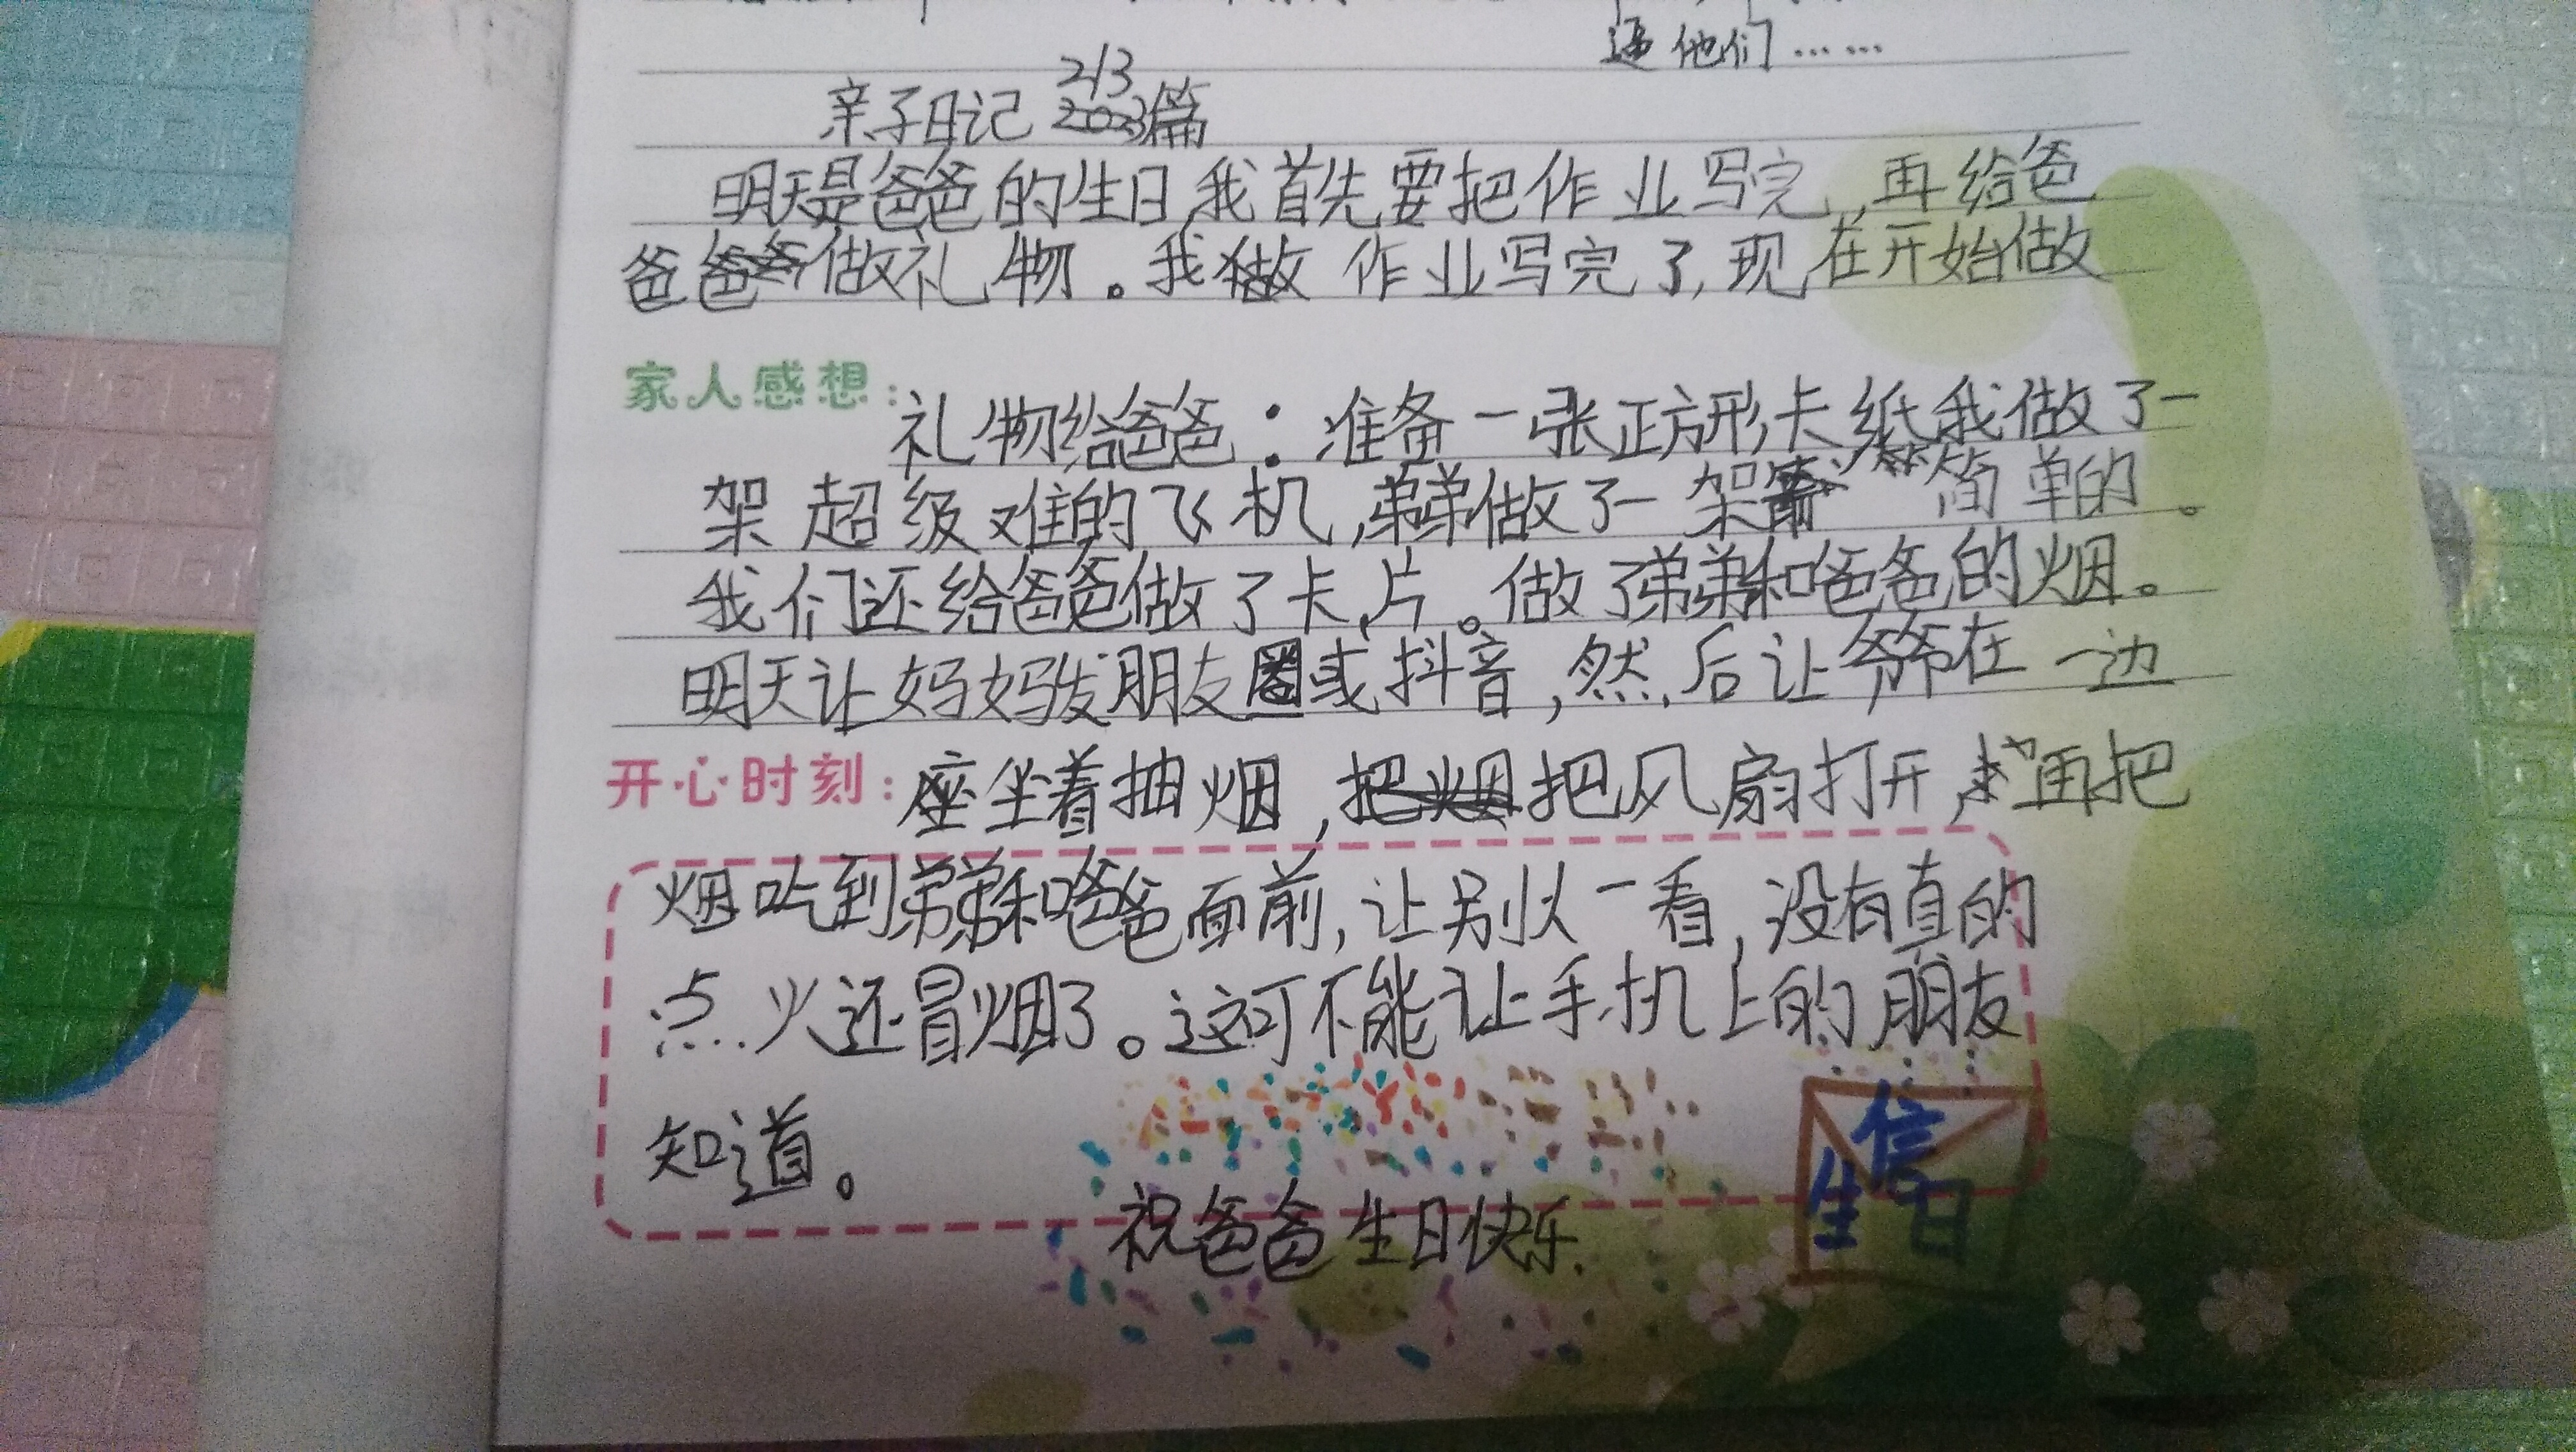 逼他们……
亲子日记 213篇
明天是爸爸的生日,我首先要把作业写完,再给爸
爸爸做礼物。我做作业写完了,现在开始做
家人感想:礼物给爸爸:准备一张正方形卡纸我做了一
架超级难的飞机,弟弟做了一架简单的。
我们还给爸爸做了卡片。做了弟弟和爸爸的烟。
明天让妈妈发朋友圈或抖音,然后让爷爷在一边
开心时刻:坐着抽烟,把风扇打开,再把
烟吃到弟弟和爸爸面前,让别人一看,没有真的
点火还冒烟了。这可不能让手机上的朋友
知道。
祝爸爸生日快乐.
信
生日